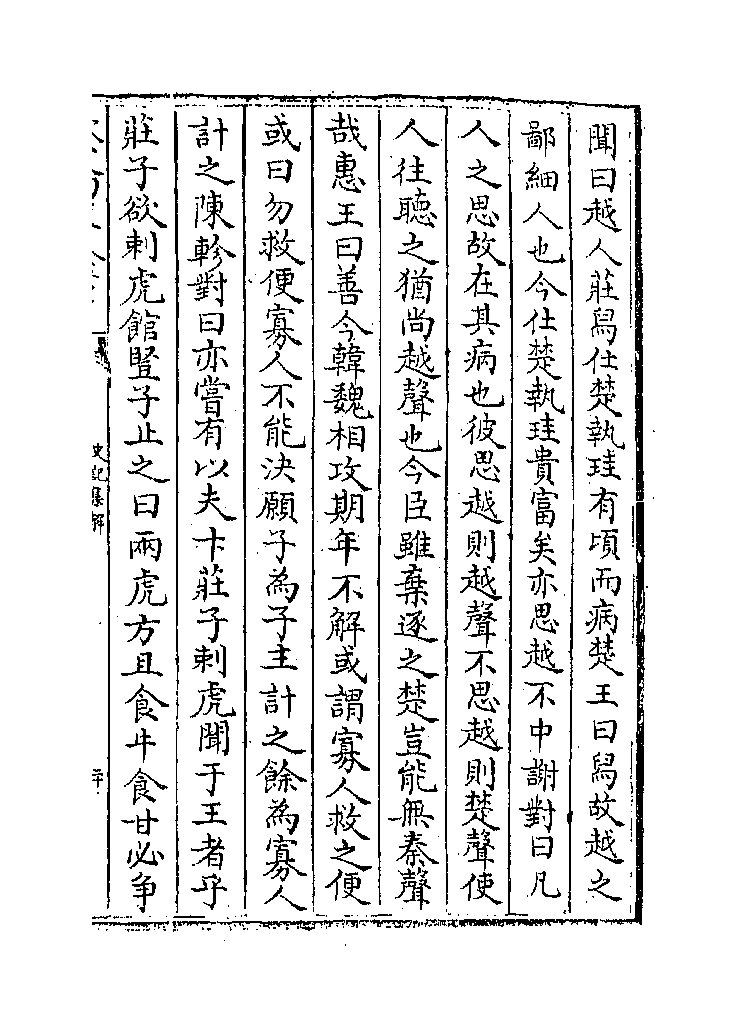 聞曰越人莊舄仕楚執珪有頃而病楚王曰舄故越之
鄙細人也今仕楚執珪貴富矣亦思越不中謝對曰凡
人之思故在其病也彼思越則越聲不思越則楚聲使
人往聽之猶尚越聲也今臣雖棄逐之楚豈能無秦聲
哉惠王曰善今韓魏相攻期年不解或謂寡人救之便
或曰勿救便寡人不能決願子為子主計之餘為寡人
計之陳軫對曰亦嘗有以夫卞莊子刺虎聞于王者乎
莊子欲刺虎館豎子止之曰兩虎方且食牛食甘必争
史記集解